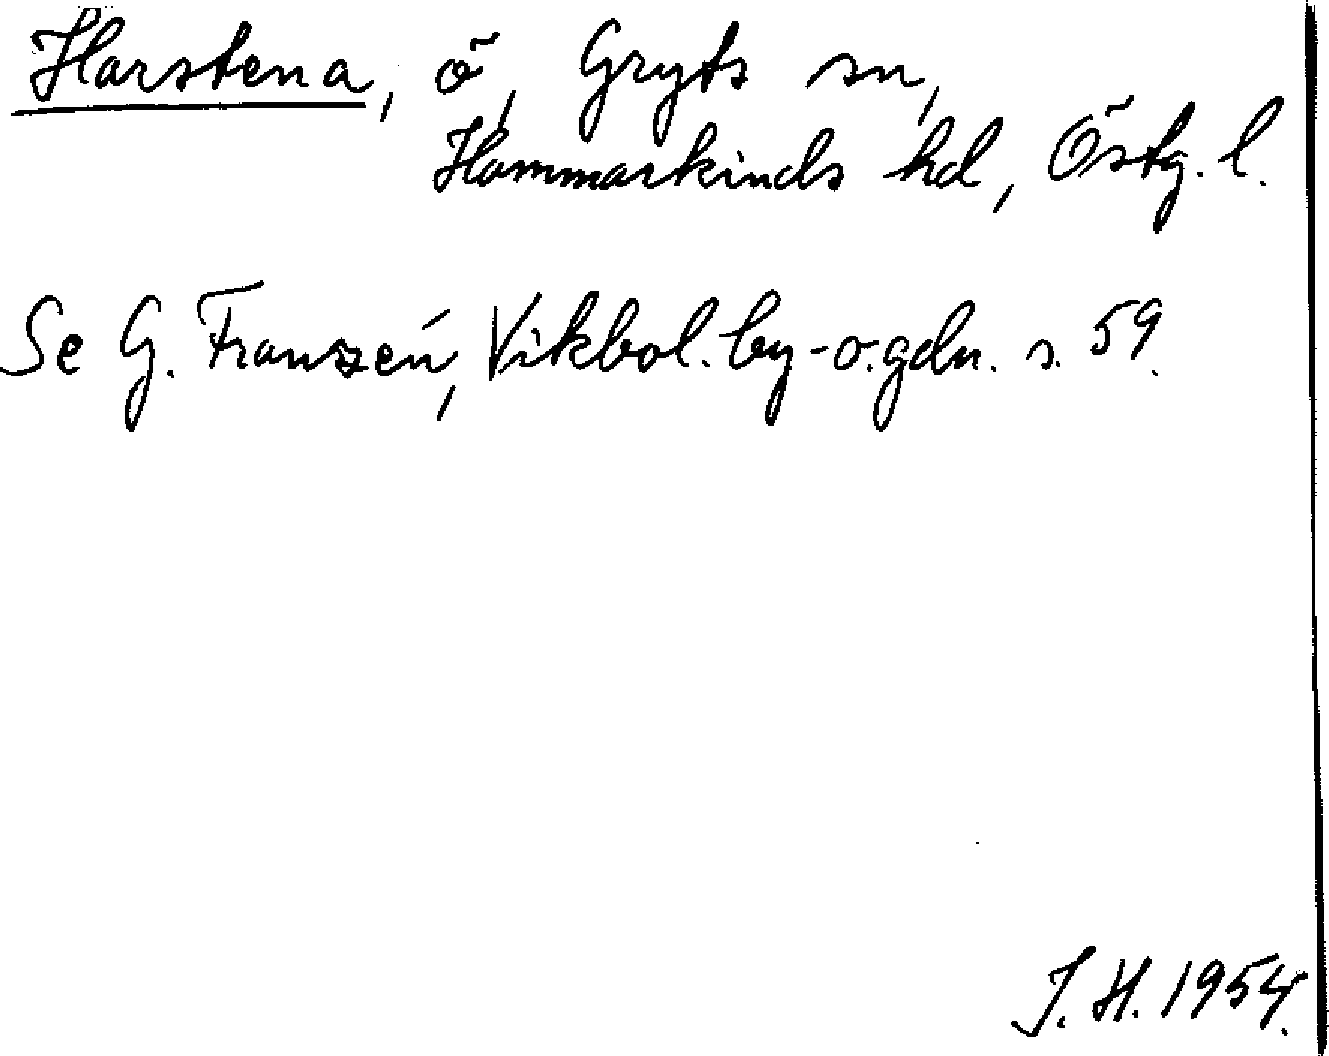 Harstena, ö, Gryts sn,
Hammarkinds hd, Östg. l.
Se G. Franzén, Vikbol. by- o. gdn. s. 59.
J. H. 1954.